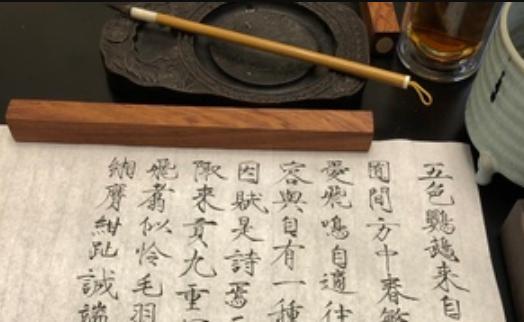 五色鸚鵡來自
囿間方中春繁
愛飛鳴自適往
容與自有一種
因賦是詩焉
陬來貢九重
飛翥似怜毛羽
緗膺紺趾誠端